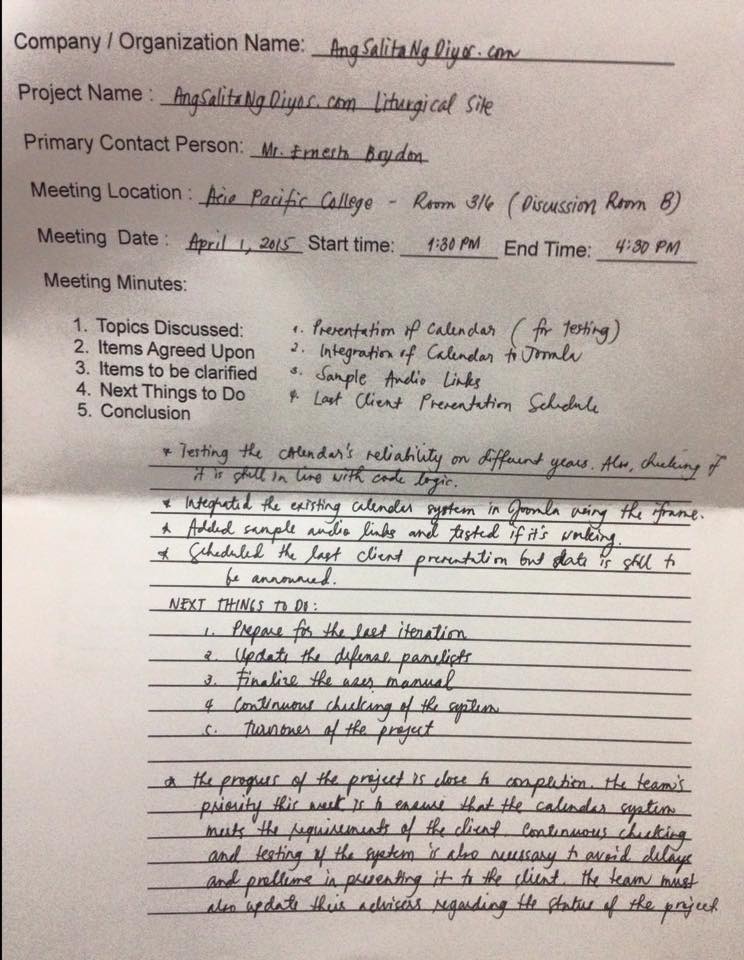 Company / Organization Name: AngSalitaNgDiyos.com
Project Name : AngSalitaNgDiyos.com Liturgical Site
Primary Contact Person: Mr. Ernesto Boydon
Meeting Location : Asia Pacific College - Room 316 (Discussion Room B)
Meeting Date : April 1, 2015 Start time: 1:30 PM End Time: 4:30 PM
Meeting Minutes:
1. Topics Discussed: 1. Presentation of Calendar (for testing)
2. Items Agreed Upon 2. Integration of Calendar to Joomla
3. Items to be clarified 3. Sample Audio Links
4. Next Things to Do 4. Last Client Presentation Schedule
5. Conclusion
* Testing the calendar's reliability on different years. Also, checking if
it is still in line with code logic.
* Integrated the existing calendar system in Joomla using the iframe.
* Added sample audio links and tested if it's working.
* Scheduled the last client presentation but date is still to
be announced.
NEXT THINGS TO DO:
1. Prepare for the last iteration
2. Update the defense panelists
3. Finalize the user manual
4 Continuous checking of the system
5. Turnover of the project
* The progress of the project is close to completion. The team's
priority this week is to ensure that the calendar system
meets the requirements of the client. Continuous checking
and testing of the system is also necessary to avoid delays
and problems in presenting it to the client. The team must
also update their advisers regarding the status of the project